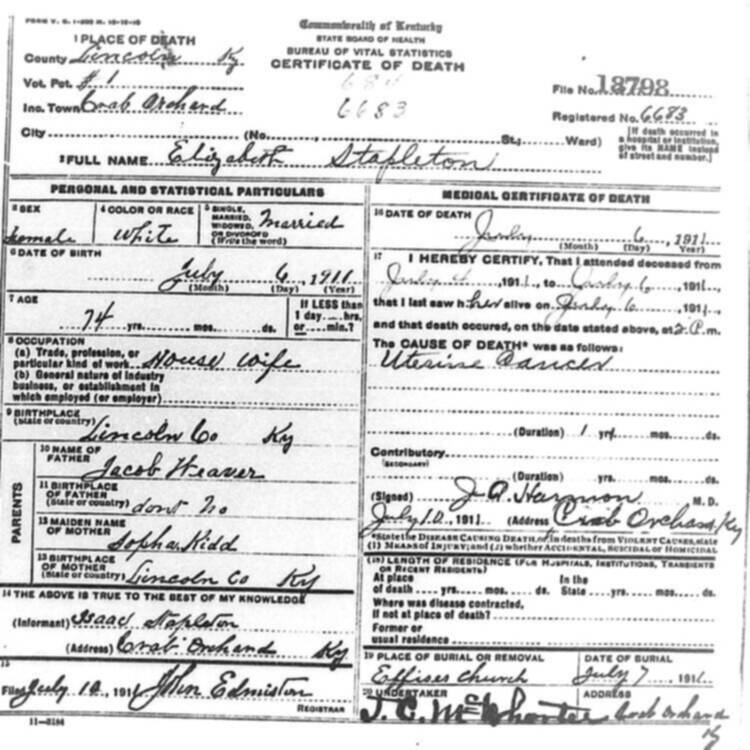 FORM V. S. 1-200 M. 10-12-10
Commonwealth of Kentucky
STATE BOARD OF HEALTH
BUREAU OF VITAL STATISTICS
CERTIFICATE OF DEATH
1 PLACE OF DEATH
County Lincoln Ky
Vot. Pct. #1
Inc. Town Crab Orchard
6683
File No. 18798
Registered No. 6683
City (No. St.; Ward)
[If death occurred in a hospital or institution, give its NAME instead of street and number.]
2 FULL NAME Elizabeth Stapleton
PERSONAL AND STATISTICAL PARTICULARS
3 SEX
female
4 COLOR OR RACE
White
5 SINGLE, MARRIED, WIDOWED, OR DIVORCED (Write the word)
Married
6 DATE OF BIRTH
July 6, 1911
(Month) (Day) (Year)
7 AGE
74 yrs. mos. ds.
If LESS than 1 day hrs. or min.?
8 OCCUPATION
(a) Trade, profession, or particular kind of work House wife
(b) General nature of industry business, or establishment in which employed (or employer)
9 BIRTHPLACE
(State or country) Lincoln Co Ky
PARENTS
10 NAME OF FATHER
Jacob Weaver
11 BIRTHPLACE OF FATHER
(State or country) dont no
12 MAIDEN NAME OF MOTHER
Sopha Kidd
13 BIRTHPLACE OF MOTHER
(State or country) Lincoln Co Ky
14 THE ABOVE IS TRUE TO THE BEST OF MY KNOWLEDGE
(Informant) Isaac Stapleton
(Address) Crab Orchard Ky
15
Filed July 10, 1911 John Edmiston
REGISTRAR
11-3184
MEDICAL CERTIFICATE OF DEATH
16 DATE OF DEATH
July 6, 1911
(Month) (Day) (Year)
17 I HEREBY CERTIFY, That I attended deceased from
July 4, 1911, to July 6, 1911
that I last saw her alive on July 6, 1911
and that death occured, on the date stated above, at 2 P.m.
The CAUSE OF DEATH* was as follows:
Uterine Cancer
(Duration) 1 yrs. mos. ds.
Contributory
(SECONDARY)
(Duration) yrs. mos. ds.
(Signed) J. A. Harmon M. D.
July 10, 1911 (Address) Crab Orchard Ky
*State the DISEASE CAUSING DEATH, or in deaths from VIOLENT CAUSES, state
(1) MEANS OF INJURY; and (2) whether ACCIDENTAL, SUICIDAL or HOMICIDAL
(18) LENGTH OF RESIDENCE (FOR HOSPITALS, INSTITUTIONS, TRANSIENTS OR RECENT RESIDENTS)
At place of death yrs. mos. ds. In the State yrs. mos. ds.
Where was disease contracted, if not at place of death?
Former or usual residence
19 PLACE OF BURIAL OR REMOVAL
Effises Church
DATE OF BURIAL
July 7, 1911
20 UNDERTAKER
J. C. McWhorter
ADDRESS
Crab Orchard
Ky